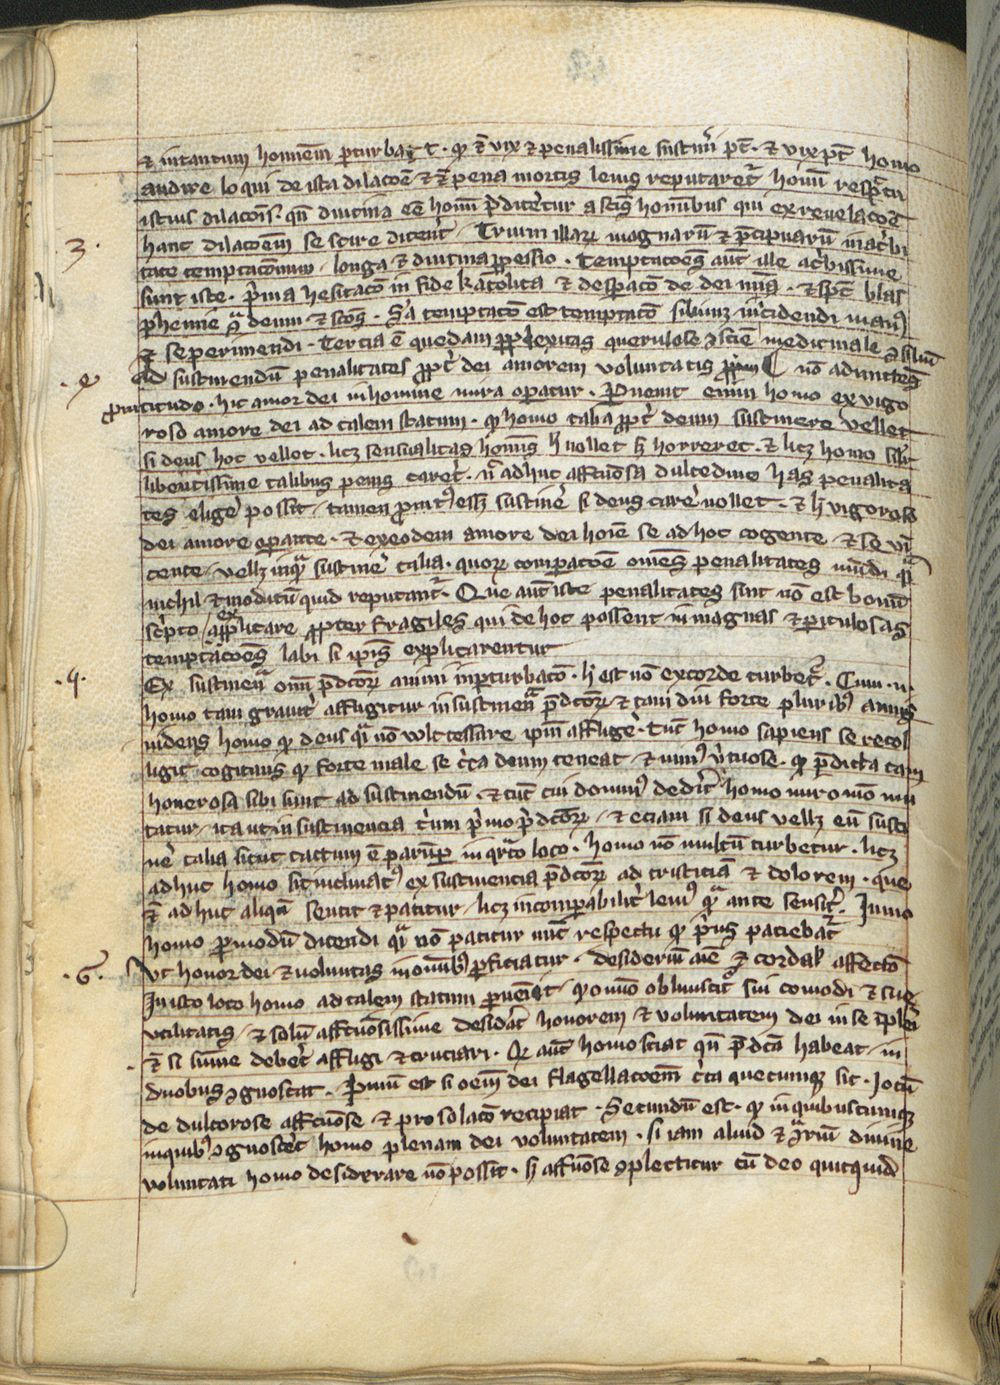 & intantum hominem perturbat · qͦ & vix & penalissime sustineri pt̄ · & vix pt̄ homo
audire loqui de ista dilacōe & pena mortis leuis reputaret᷑ homī respectu
istius dilacōis · qn̄ diutina eē homī p̄diceretur a sctīs homībus qui ex reuelacōe
3 ·
hanc dilacōem se scire dicerēt / Trium illarum magnarū & p̄cipuarū in ac̄bi
tate temptacōnum · longa & diutina progressio · Temptacōes aūt ille ac̄bissime
sunt iste · p̄ma hesitacō in fide katolica & despacō de dei mīa · & spūs blas
phemie 9tra deum · & scōs · S̄a temptacō est temptacō sibimet incidendi manus
& se perimendi · Tercia ē quedam perplexitas querulose 9sciēcie
ad sustinendū penalitates ppt̄ dei amorem voluntatis nō aduertēs
promtitudo · hic amor dei in homine mira operatur · Peruenit enim homo ex vigo
roso amore dei ad talem statum · qͦ homo talia ppt̄ deum sustinere vellet
si deus hoc vellet · licz sensualitas homīs hͦ nollet sꝫ horreret · & licz homo
libentissime talibus penis careret · nec adhuc affectuosa dulcedine has penalita
tes eligere possit / tamen promtus esset sustinere si deus carere nollet · & hͦ vigoroso
dei amore operante · & ex eodem amore dei hoīem se ad hoc cogente & se vin
cente / vellet inquam sustinere talia · quorum comparacōe omēs penalitates mūdi quasi
nichil & modicū quid reputant᷑ · Que aūt iste penalitates sint nō est bonū
scripto explicare propter fragiles qui de hoc possent in magnas & periculosas
temptacōes labi si ipīs explicarentur
· 4 ·
Ex sustinēcia omī p̄dcōrum animi inperturbacō · hͦ est nō ex corde turbet᷑ · Cum ·n·
homo tam grauiter affligitur in sustinēcia p̄dcōrum & tam diu forte pluribus annis
uidens homo qͦ deus quasi nō vlt cessare ipm̄ affligere · Tunc homo sapiens se recol
ligit cogitans qͦ forte male se circa deum teneat & nimis virtuose · qͦ p̄dicta tam
honerosa sibi sunt ad sustinendū · & tūc cui dominus dederit homo miro mō mu
tatur / ita ut in sustinencia trium primo p̄dcōrum / & eciam si deus vellet eū susti
nere talia sicut tactum ē parumper in quarto loco · homo nō multū turbetur · licz
adhuc homo sit inclinatus ex sustinencia p̄dcōrum ad tristiciā & dolorem · que
& adhuc aliquam sentit & patitur / licz incomparabiliter leuius quam ante senserit · Immo
homo per modū dicendi quasi nō patitur nunc respectu qͦ prius paciebat᷑
· G ·
Vt honor dei & uoluntas in omībus perficiatur · desideriū mēs & cordalis affectō
In isto loco homo ad talem statum peruenit / qͦ omīno obliuiscit᷑ sui comodi & sue
vtilitatis / & solū affectuosissime desiderat honorem & voluntatem dei in se impleri
& si sum̄e deberet affligi & cruciari · Qr aūt homo sciat qn̄ p̄dcā habeat / in
duobus 9gnoscat · Primū est si oēm dei flagellacōem circa quecumque sit · Iocū
de dulcorose affectuose & pro solacō recipiat · Secundū est · qͦ in quibuscumque
in quibus 9gnosceret homo plenam dei voluntatem · si iam aliud & 9trariū diuine
voluntati homo desiderare nō possit · sꝫ affectuose 9plectitur cū deo quitquid